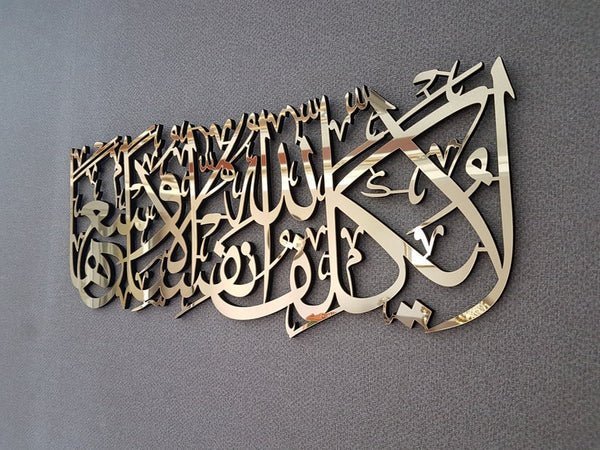 لا يكلف الله نفسا إلا وسعها